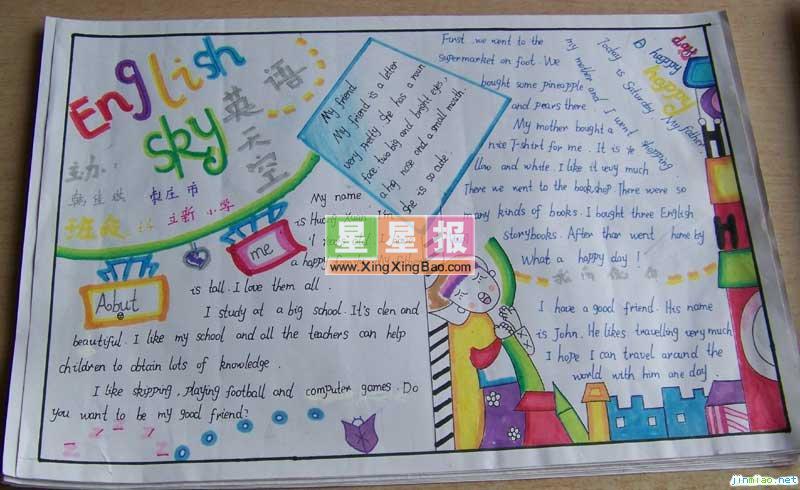 English
sky
英语
天空
主办:
枣庄市
立新小学
班级
My friend
My friend is a letter
very pretty. She has a roun
face two big and bright eyes,
a big nose and a small mouth.
she is so cute.
Aobut
me
My name
is
a happy
is tall. I love them all.
I study at a big school. It's clen and
beautiful. I like my school and all the teachers can help
children to obtain lots of knowledge.
I like skipping, playing football and computer games. Do
you want to be my good friend?
A happy
day
happy
Today is Saturday. My father
my mother and I went shopping.
First we went to the
supermarket on foot. We
bought some pineapple
and pears there
My mother bought a
nice T-shirt for me. It is
llao and white. I like it very much.
There we went to the bookshop. There were so
many kinds of books. I bought three English
storybooks. After than went home by
What a happy day!
I have a good friend. His name
is John. He likes travelling very much
I hope I can travel around the
world with him one day.
H
H
星星报
www.XingXingBao.com
jinmiao.net